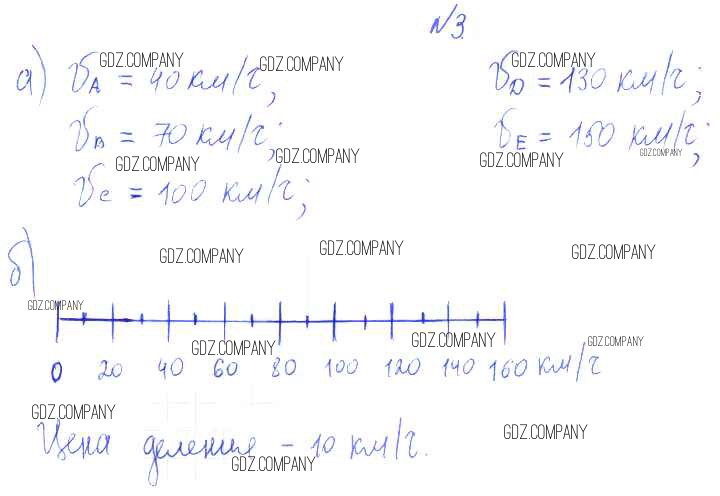 №3
GDZ.COMPANY GDZ.COMPANY GDZ.COMPANY
а) υA = 40 км/г; υD = 130 км/г;
υB = 70 км/г; υE = 150 км/г;
GDZ.COMPANY GDZ.COMPANY GDZ.COMPANY GDZ.COMPANY
υC = 100 км/г;
б)
GDZ.COMPANY GDZ.COMPANY GDZ.COMPANY
GDZ.COMPANY
GDZ.COMPANY GDZ.COMPANY GDZ.COMPANY
0 20 40 60 80 100 120 140 160 км/г
GDZ.COMPANY
Цена деления – 10 км/г.
GDZ.COMPANY GDZ.COMPANY